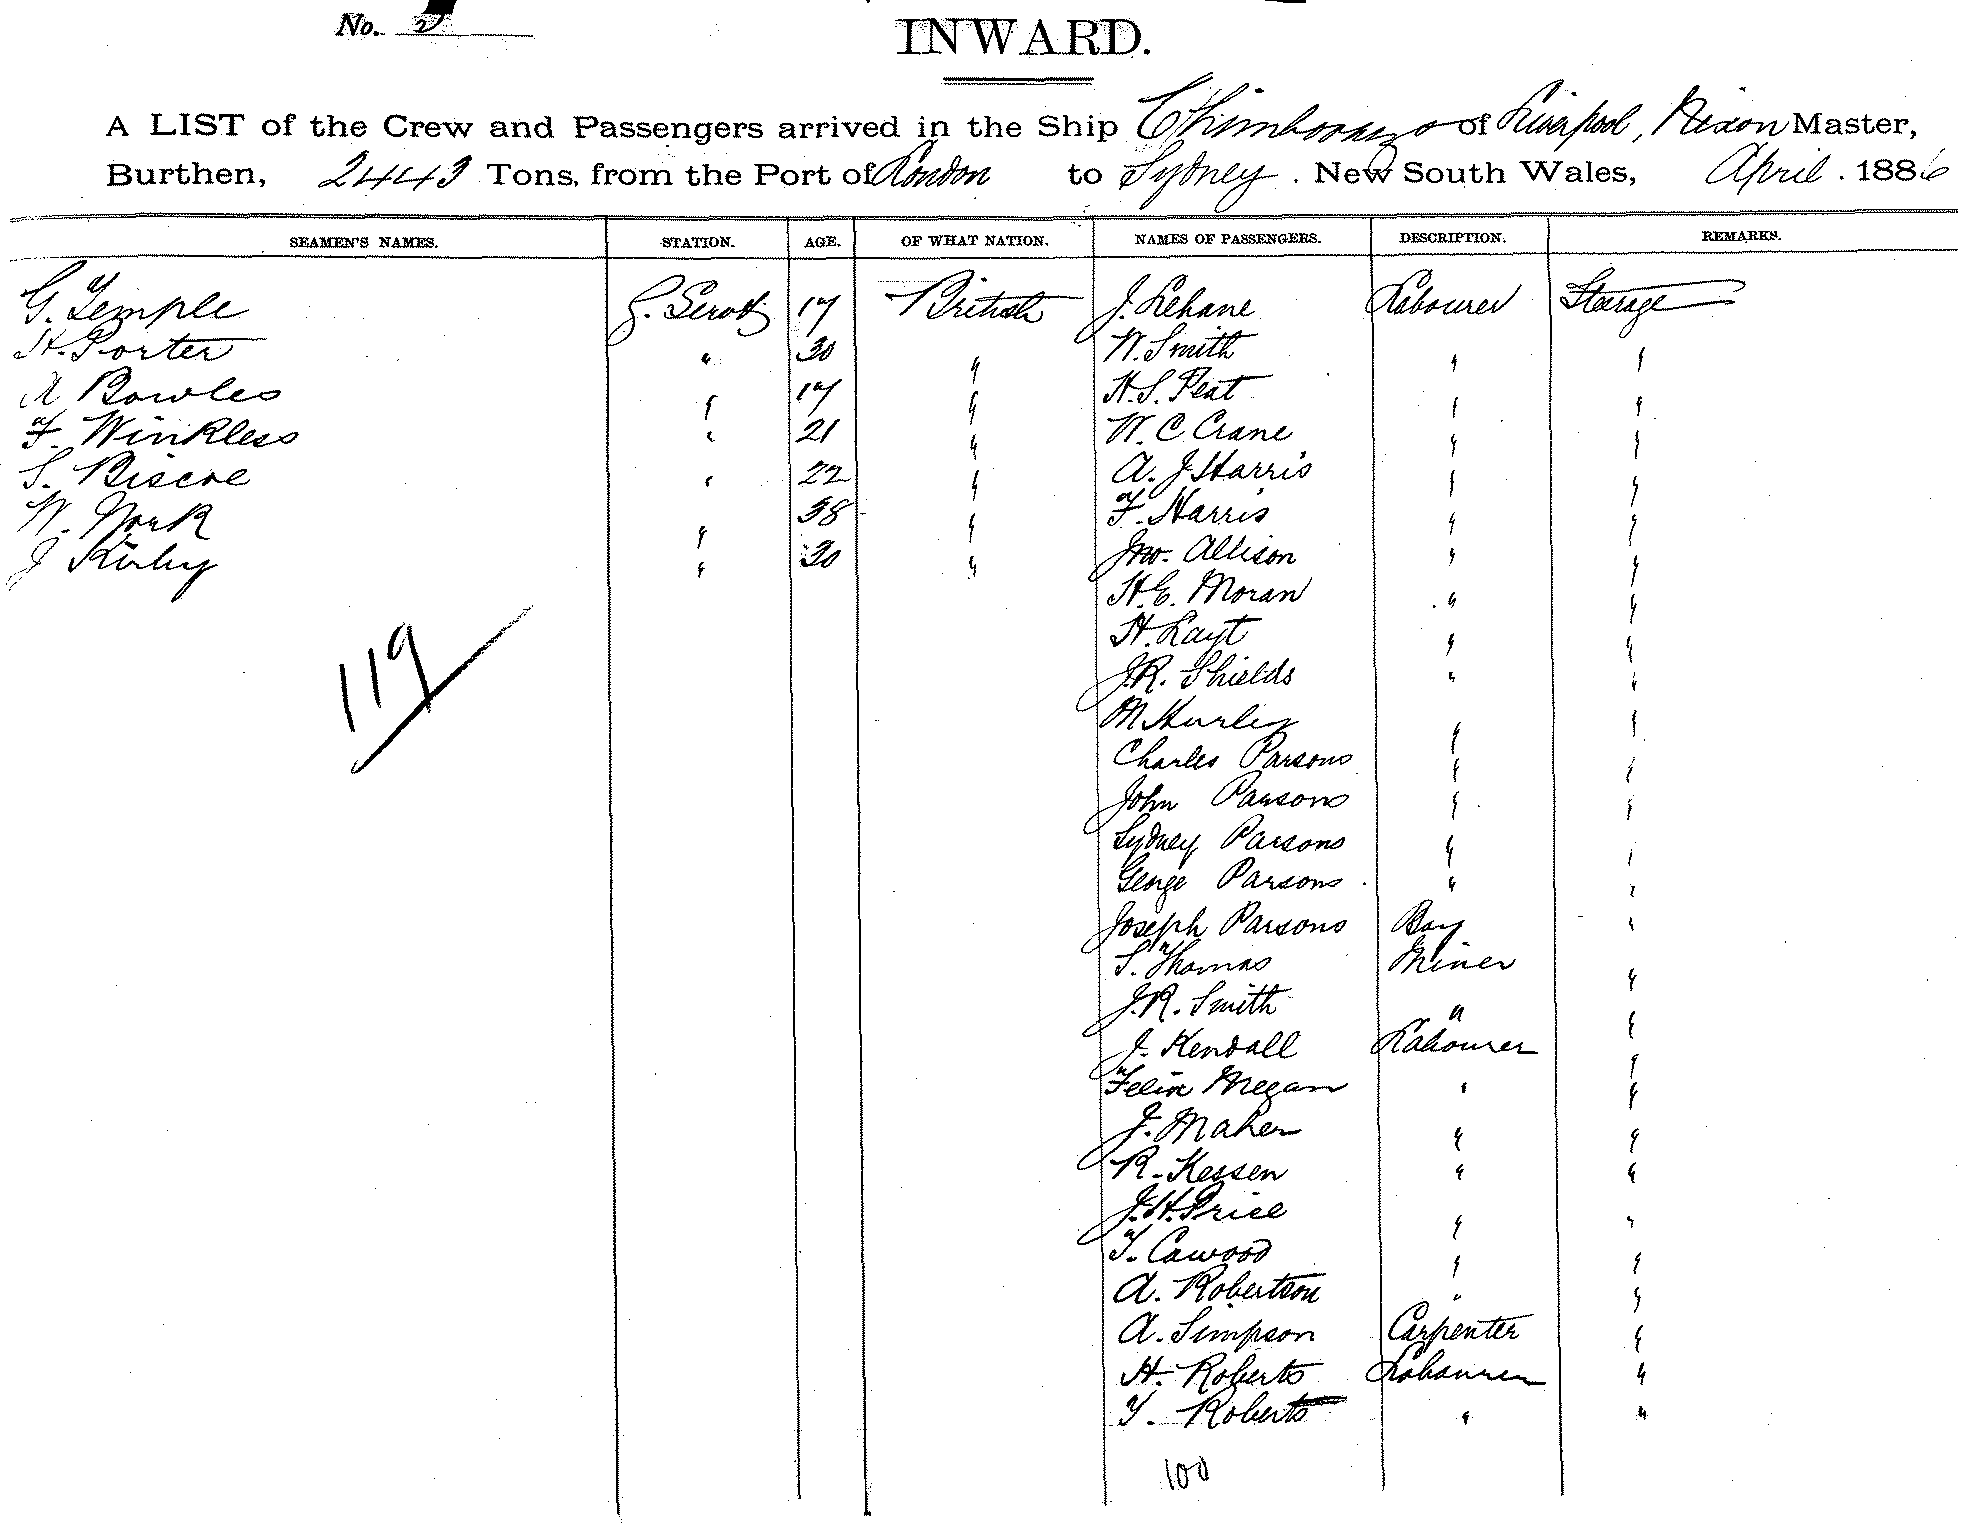 No. 3
INWARD.
A LIST of the Crew and Passengers arrived in the Ship Chimborazo of Liverpool, Nixon Master,
Burthen, 2443 Tons, from the Port of London to Sydney. New South Wales, April. 1886
SEAMEN'S NAMES. STATION. AGE. OF WHAT NATION. NAMES OF PASSENGERS. DESCRIPTION. REMARKS.
G. Temple G. Servt 17 British J. Lehane Labourer Steerage
H. Porter " 30 " W. Smith " "
A Bowles " 17 " H. S. Peat " "
F. Winkless " 21 " W. C Crane " "
S. Biscoe " 22 " A. J Harris " "
W. York " 38 " F. Harris " "
J Kirby " 30 " Jno. Allison " "
H. E. Moran " "
H. Layt " "
J. R. Shields " "
M Hurley " "
Charles Parsons " "
John Parsons " "
Sydney Parsons " "
George Parsons " "
Joseph Parsons Boy "
S. Thomas Miner "
J. R. Smith " "
J. Kendall Labourer "
Felix Megan " "
J. Maher " "
R. Kessen " "
J. H. Price " "
T. Cawood " "
A. Robertson " "
A. Simpson Carpenter "
H. Roberts Labourer "
T. Roberts " "
119
100